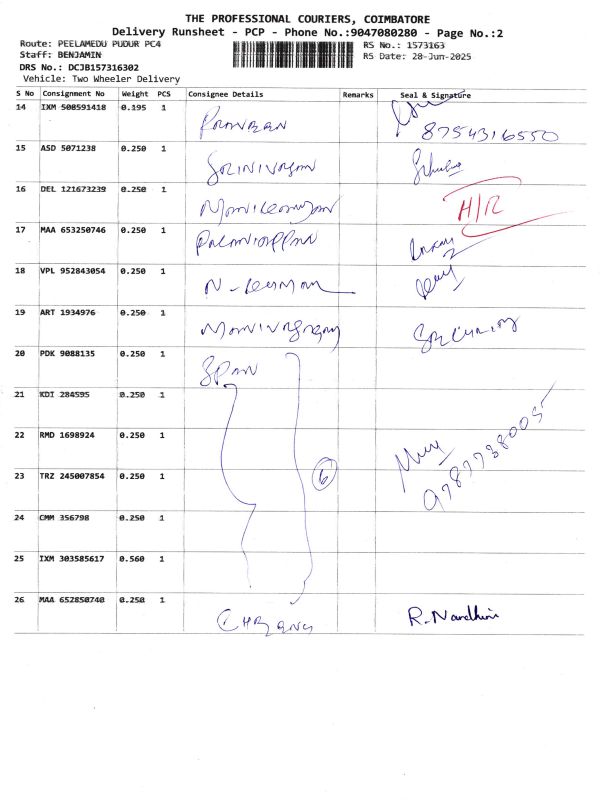 THE PROFESSIONAL COURIERS, COIMBATORE
Delivery Runsheet - PCP - Phone No.:9047080280 - Page No.:2
Route: PEELAMEDU PUDUR PC4
RS No.: 1573163
Staff: BENJAMIN
RS Date: 28-Jun-2025
DRS No.: DCJB157316302
Vehicle: Two Wheeler Delivery
S No Consignment No Weight PCS Consignee Details Remarks Seal & Signature
14 IXM 508591418 0.195 1
8754316550
15 ASD 5071238 0.250 1 SRINIVASAN
16 DEL 121673239 0.250 1 H/R
17 MAA 653250746 0.250 1 PALANIAPPAN
18 VPL 952843054 0.250 1 N-KUMAR
19 ART 1934976 0.250 1
20 PDK 9088135 0.250 1
21 KDI 284595 0.250 1
22 RMD 1698924 0.250 1
9787738005
23 TRZ 245007854 0.250 1 6
24 CMM 356798 0.250 1
25 IXM 303585617 0.560 1
26 MAA 652850740 0.250 1 R.Nandhini